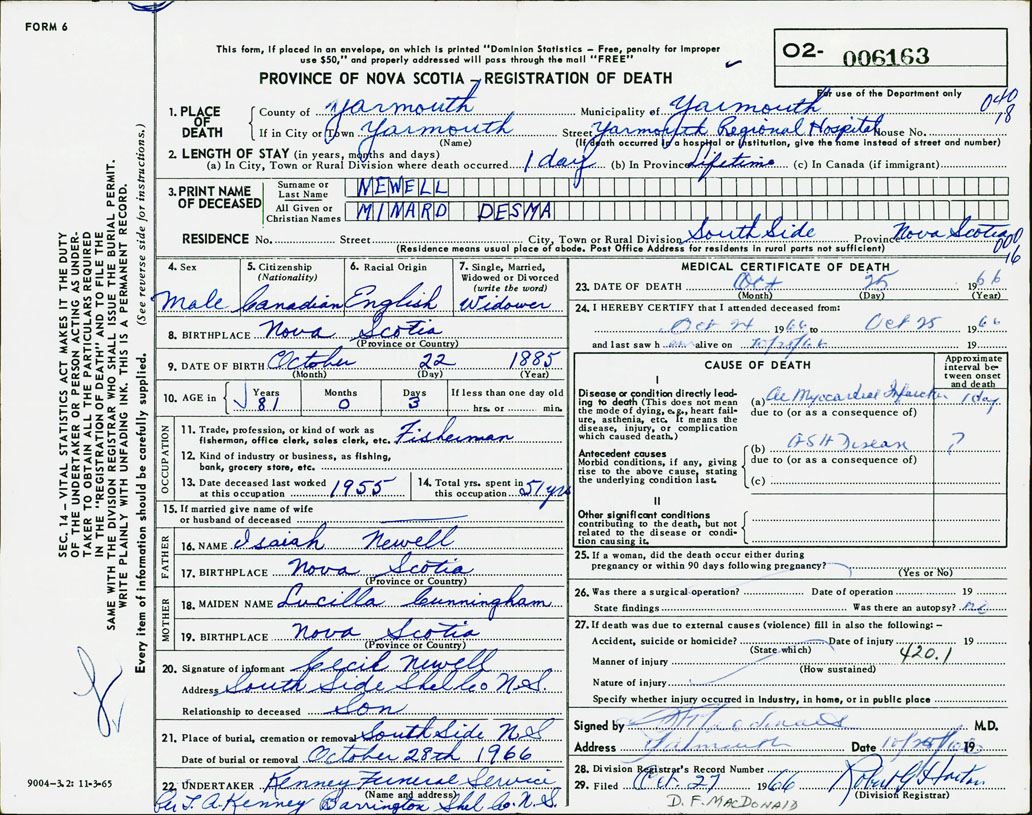 FORM 6
This form, if placed in an envelope, on which is printed "Dominion Statistics – Free, penalty for improper
use $50," and properly addressed will pass through the mail "FREE"
PROVINCE OF NOVA SCOTIA – REGISTRATION OF DEATH
02- 006163
For use of the Department only
040
18
1. PLACE OF DEATH
County of Yarmouth Municipality of Yarmouth
If in City or Town Yarmouth Street Yarmouth Regional Hospital House No.
(Name) (If death occurred in a hospital or institution, give the name instead of street and number)
2. LENGTH OF STAY (in years, months and days)
(a) In City, Town or Rural Division where death occurred 1 day (b) In Province Lifetime (c) In Canada (if immigrant)
3. PRINT NAME OF DECEASED
Surname or Last Name NEWELL
All Given or Christian Names MINARD DESMA
RESIDENCE No. Street City, Town or Rural Division South Side Province Nova Scotia
(Residence means usual place of abode. Post Office Address for residents in rural parts not sufficient)
000
16
4. Sex Male
5. Citizenship (Nationality) Canadian
6. Racial Origin English
7. Single, Married, Widowed or Divorced (write the word) Widower
8. BIRTHPLACE Nova Scotia
(Province or Country)
9. DATE OF BIRTH October 22 1885
(Month) (Day) (Year)
10. AGE in Years 81 Months 0 Days 3 If less than one day old
hrs. or min.
OCCUPATION
11. Trade, profession, or kind of work as fisherman, office clerk, sales clerk, etc. Fisherman
12. Kind of industry or business, as fishing, bank, grocery store, etc.
13. Date deceased last worked at this occupation 1955
14. Total yrs. spent in this occupation 51 yrs
15. If married give name of wife or husband of deceased
FATHER
16. NAME Isaiah Newell
17. BIRTHPLACE Nova Scotia
(Province or Country)
MOTHER
18. MAIDEN NAME Lucilla Cunningham
19. BIRTHPLACE Nova Scotia
(Province or Country)
20. Signature of informant Cecil Newell
Address South Side Shel Co N.S.
Relationship to deceased Son
21. Place of burial, cremation or removal South Side N S
Date of burial or removal October 28th 1966
22. UNDERTAKER Kenney Funeral Service
(Name and address)
Per L A Kenney Barrington Shel Co. N.S.
MEDICAL CERTIFICATE OF DEATH
23. DATE OF DEATH Oct 25 1966
(Month) (Day) (Year)
24. I HEREBY CERTIFY that I attended deceased from:
Oct 24 1966 to Oct 25 1966
and last saw h alive on 10/25/66 19
CAUSE OF DEATH
Approximate interval between onset and death
I
Disease or condition directly leading to death (This does not mean the mode of dying, e.g., heart failure, asthenia, etc. it means the disease, injury, or complication which caused death.)
(a) Ac Myocardial Infarction 1 day
due to (or as a consequence of)
Antecedent causes
Morbid conditions, if any, giving rise to the above cause, stating the underlying condition last.
(b) ASH Disease ?
due to (or as a consequence of)
(c)
II
Other significant conditions
contributing to the death, but not related to the disease or condition causing it.
25. If a woman, did the death occur either during
pregnancy or within 90 days following pregnancy?
(Yes or No)
26. Was there a surgical operation? Date of operation 19
State findings Was there an autopsy? no
27. If death was due to external causes (violence) fill in also the following: –
Accident, suicide or homicide? Date of injury 19
(State which)
420.1
Manner of injury
(How sustained)
Nature of injury
Specify whether injury occurred in Industry, in home, or in public place
Signed by M.D.
Address Yarmouth Date 19
28. Division Registrar's Record Number
29. Filed Oct. 27 1966 Robert G Horton
(Division Registrar)
D. F. MACDONALD
SEC. 14 – VITAL STATISTICS ACT MAKES IT THE DUTY
OF THE UNDERTAKER OR PERSON ACTING AS UNDER-
TAKER TO OBTAIN ALL THE PARTICULARS REQUIRED
IN THE "REGISTRATION OF DEATH" AND TO FILE THE
SAME WITH THE DIVISION REGISTRAR WHO SHALL ISSUE THE BURIAL PERMIT.
WRITE PLAINLY WITH UNFADING INK. THIS IS A PERMANENT RECORD.
Every item of information should be carefully supplied. (See reverse side for instructions.)
9004-3.2: 11-3-65